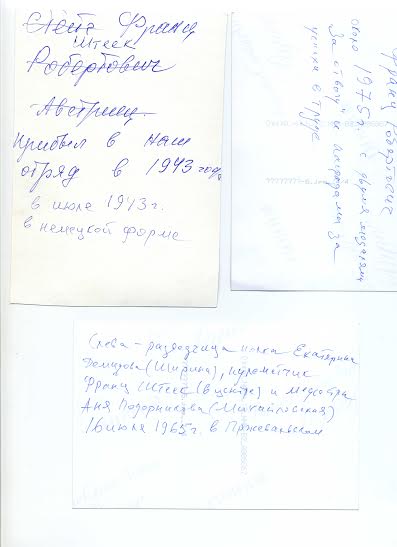 Стейт Франц
Штеек
Робертович
Австриец
Прибыл в наш
отряд в 1943 году
в июле 1943 г.
в немецкой форме
Франц Робертович
около 1975 г. с двумя медалями
За отвагу и наградами за
успехи в труде
Слева - разведчица полка Екатерина
Демидова (Ширина), пулеметчик
Франц Штеек (в центре) и медсестра
Аня Подорникова (Михайловская)
16 июля 1965 г. в Пржевальском